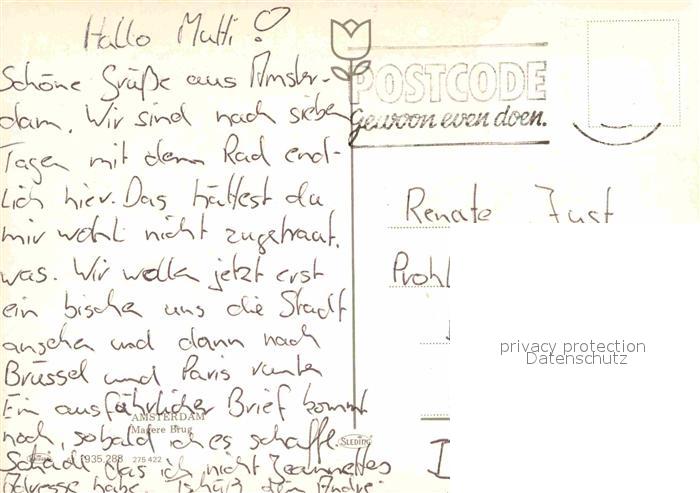 Hallo Mutti!
Schöne Grüße aus Amster-
dam. Wir sind nach sieben
Tagen mit dem Rad end-
lich hier. Das hättest du
mir wohl nicht zugetraut,
was. Wir wollen jetzt erst
ein bischen uns die Stadt
ansehen und dann nach
Brüssel und Paris runter
Ein ausführlicher Brief kommt
noch, sobald ich es schaffe.
Schade das ich nicht Jeannettes
Adresse habe. Tschüß dein André
POSTCODE
Gewoon even doen.
Renate Just
Prohl
privacy protection
Datenschutz
AMSTERDAM
Magere Brug
SLEDING
935.288 275 422